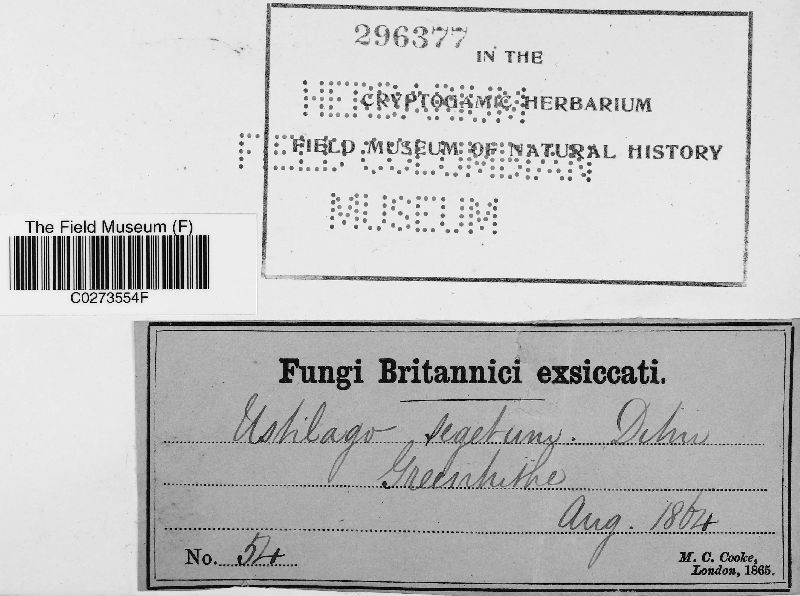 296377
IN THE
CRYPTOGAMIC HERBARIUM
HERBARIUM
FIELD MUSEUM OF NATURAL HISTORY
FIELD COLUMBIAN
MUSEUM
The Field Museum (F)
C0273554F
Fungi Britannici exsiccati.
Ustilago segetum. Ditm
Greenhithe
Aug. 1864
No. 54
M. C. Cooke,
London, 1865.